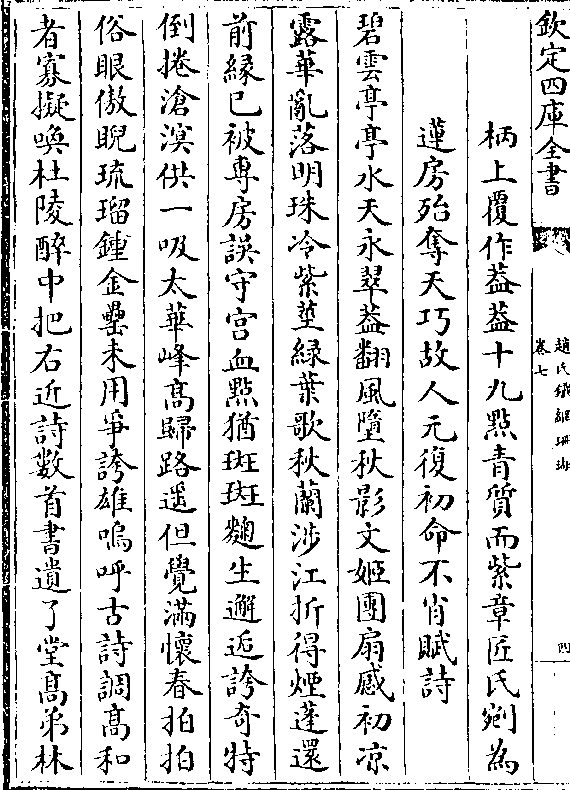 欽定四庫全書
趙氏鐵網珊瑚
卷七
四
柄上覆作葢葢十九點青質而紫章匠氏剜為
蓮房殆奪天巧故人元復初命不肖賦詩
碧雲亭亭水天永翠葢翻風墮秋影文姬團扇感初凉
露華亂落明珠冷紫莖緑葉歌秋蘭涉江折得煙蓬還
前縁已被専房誤守宫血點猶斑斑麴生邂逅誇奇特
倒捲滄溟供一吸太華峰髙歸路遥但覺滿懐春拍拍
俗眼傲睨琉璃鍾金罍未用爭誇雄嗚呼古詩調髙和
者寡擬喚杜陵醉中把右近詩數首書遺了堂髙弟林